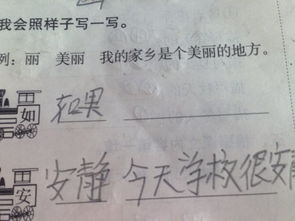 我会照样子写一写。
例：丽 美丽 我的家乡是个美丽的地方。
如 如果
安 安静 今天学校很安静